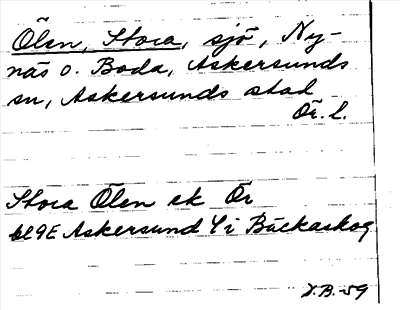 Ölen, Stora, sjö, Ny-
näs o. Boda, Askersunds
sn, Askersunds stad
Ör. l.
Stora Ölen ek Ör
bl 9E Askersund Y i Bäckaskog
D.B.-59